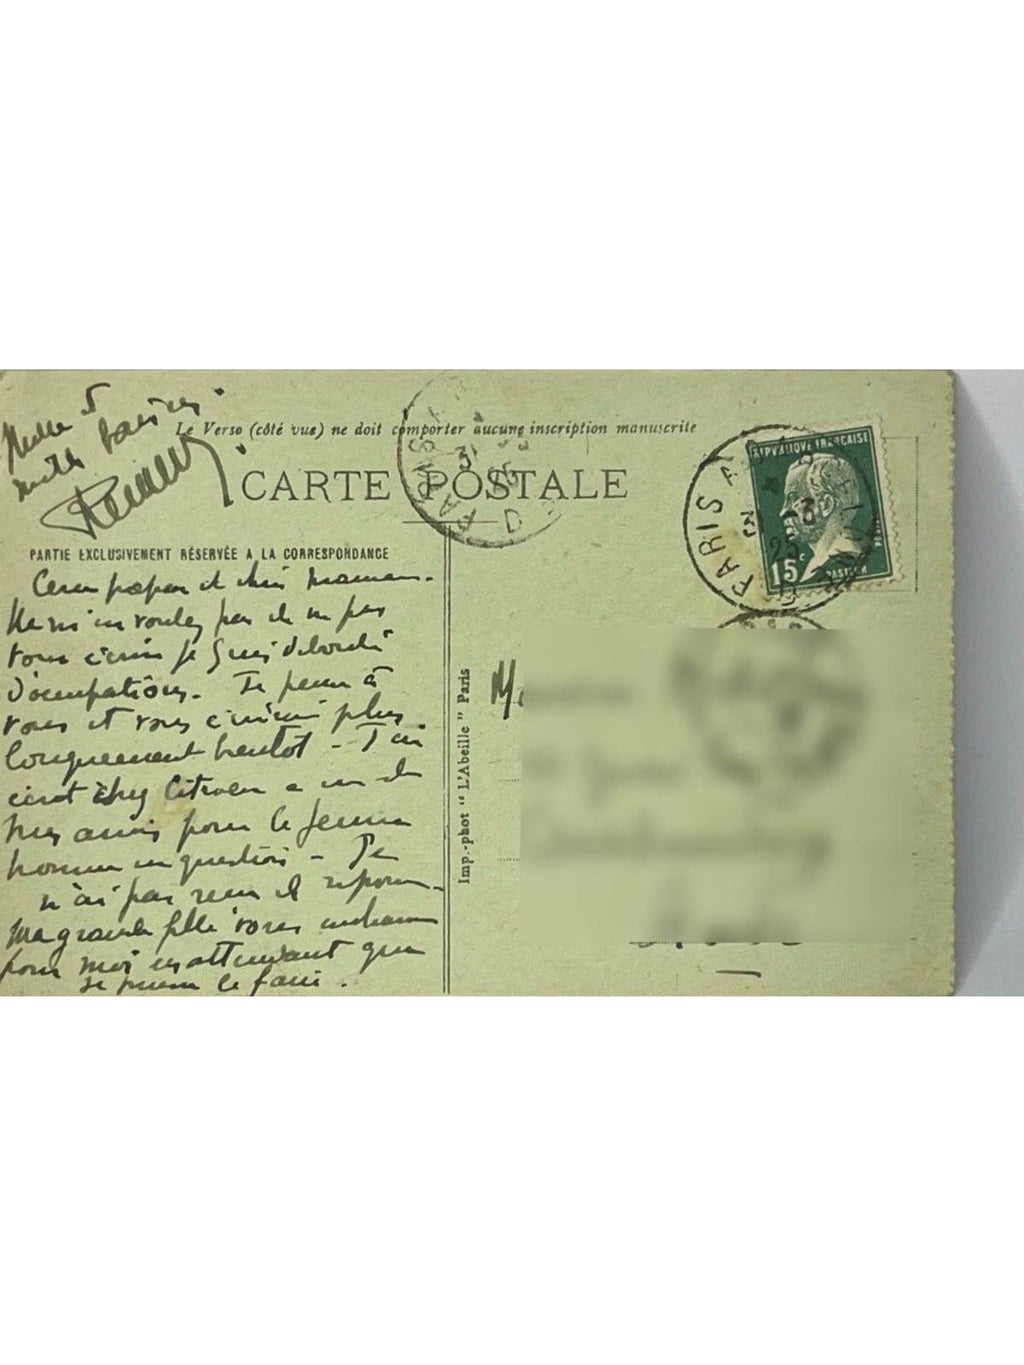 Mille et
mille baisers.
Le Verso (côté vue) ne doit comporter aucune inscription manuscrite
CARTE POSTALE
PARTIE EXCLUSIVEMENT RÉSERVÉE A LA CORRESPONDANCE
Cher papa et chère maman.
Ne m'en voulez pas de ne pas
vous écrire je suis débordé
d'occupations. Je pense à
vous et vous écrirai plus
longuement bientôt - J'ai
écrit chez Citroën a un de
mes amis pour le jeune
homme en question - Je
n'ai pas reçu de répon-
Ma grande fille vous embrasse
pour moi en attendant que
je puisse le faire.
Imp.-phot "L'Abeille" Paris
PARIS
31
25
D
PARIS
3 -3
25
REPVBLIQUE FRANÇAISE
15c
PASTEUR
POSTES